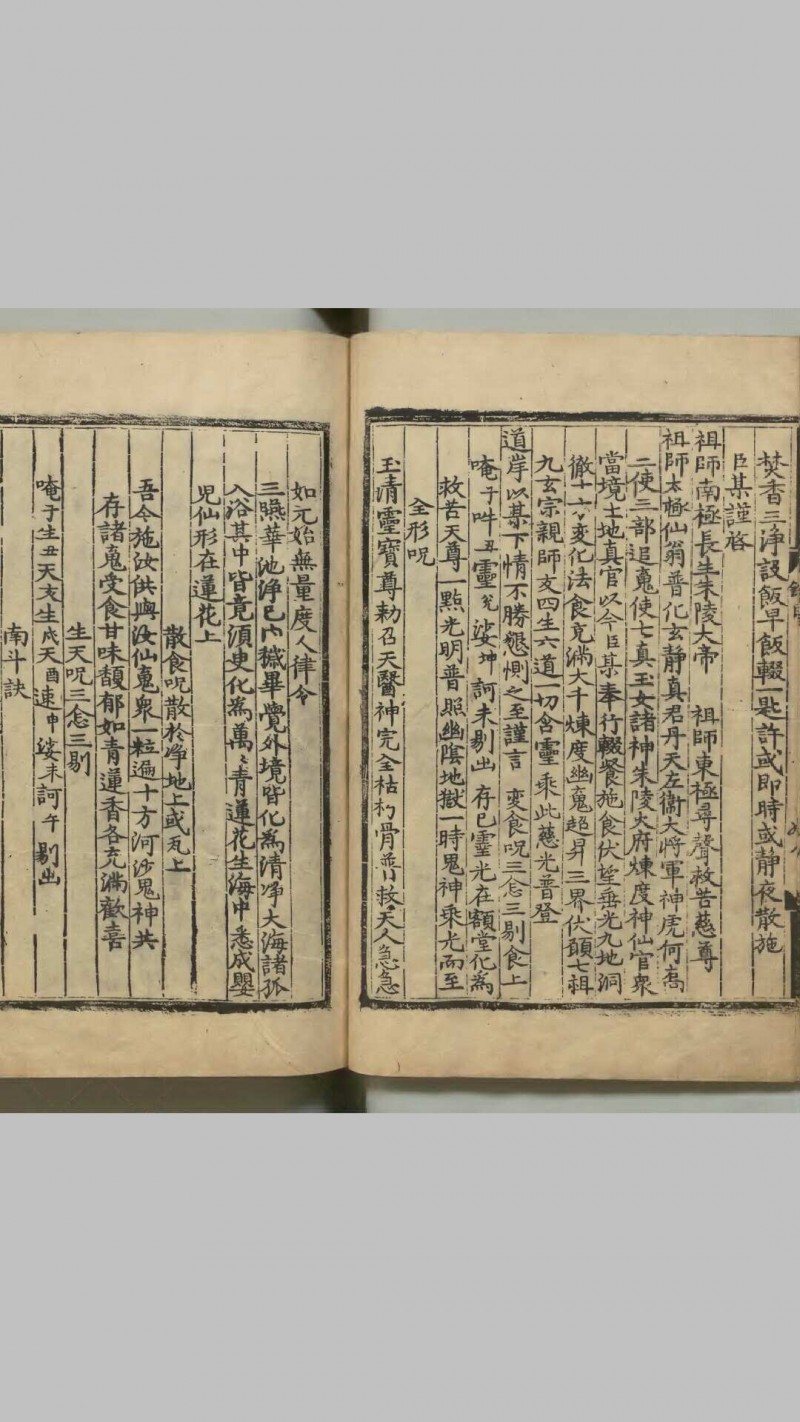 焚香三淨設飯早飯輟一匙許或即時或静夜散施
臣某謹啓
祖師南極長生朱陵大帝 祖師東極尋聲救苦慈尊
祖師太極仙翁普化玄静真君丹天左衞大將軍神虎何喬
二使三部追䰟使七真玉女諸神朱陵火府煉度神仙官衆
當境土地真官以今臣某奉行輟飡施食伏望垂光九地洞
徹十方變化法食充滿大千煉度幽䰟超昇三界伏願七祖
九玄宗親師友四生六道一切含靈乘此慈光普登
道岸以某下情不勝懇惻之至謹言 變食呪三念三剔食上
唵子吽丑靈娑坤訶未剔出 存巳靈光在額堂化為
救苦天尊一點光明普照幽陰地獄一時鬼神乘光而至
全形呪
玉清靈寶尊勑召天醫神完全枯朽骨普救天人急急
如元始無量度人律令
三㬢華池淨巳内穢畢覺外境皆化為清凈大海諸孤
入浴其中皆竟湏㬰化為萬〻青蓮花生海中悉成嬰
児仙形在蓮花上
散食呪散於凈地上或瓦上
吾今施汝供與汝仙䰟衆一粒遍十方河沙鬼神共
存諸䰟受食甘味馥郁如青蓮香各充滿歡喜
生天呪三念三剔
唵子生丑天亥生戌天酉速申娑未訶午剔出
南斗訣